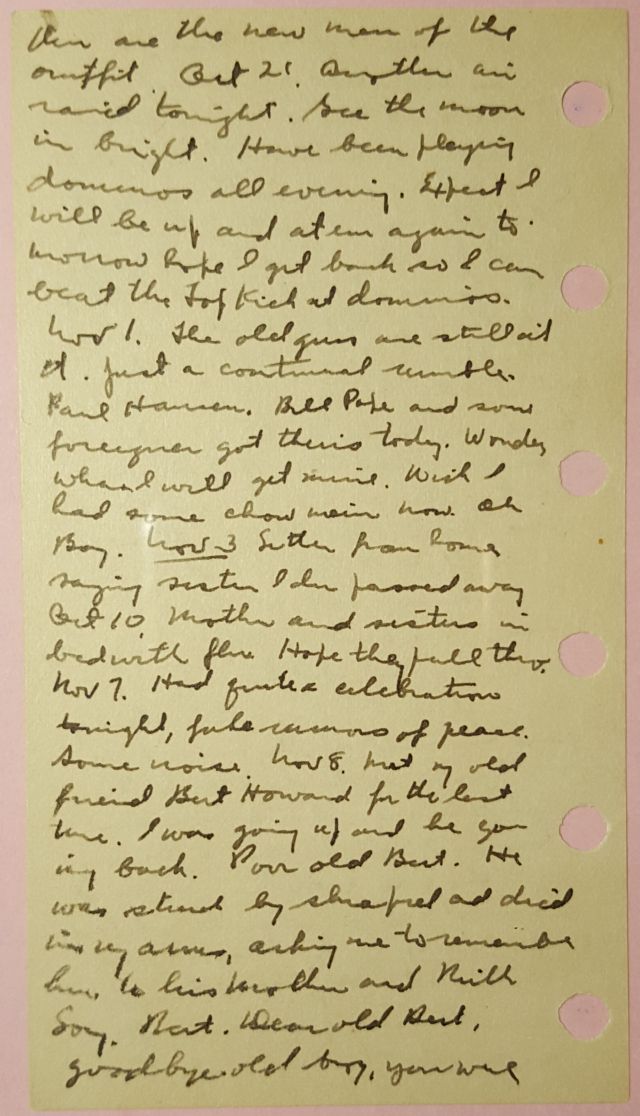 are the new men of the
outfit. Oct 21. Another air
raid tonight. See the moon
is bright. Have been playing
dominos all evening. Expect I
will be up and at em again to
morrow hope I get back so I can
beat the Top Kick at dominos.
Nov 1. The old guns are still at
it. Just a continual rumble.
Paul Hansen, Bill Pape and some
foreigner got theirs today. Wonder
when I will get mine. Wish I
had some chow mein now. Oh
Boy. Nov 3 Letter from home
saying sister Ida passed away
Oct 10. Mother and sisters in
bed with flu. Hope they pull thro.
Nov 7. Had quite a celebration
tonight, fake rumors of peace.
Some noise. Nov 8. Met my old
friend Bert Howard for the last
time. I was going up and he
back. Poor old Bert. He
was struck by shrapnel ad died
in my arms, asking me to remember
him to his Mother and Ruth
Bert. Dear old Bert,
goodbye old boy, you were